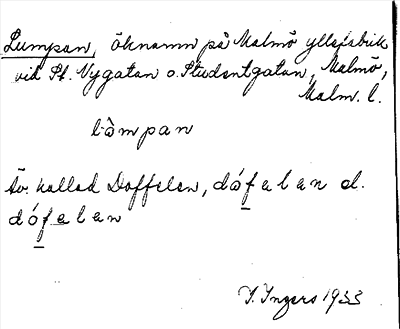 Lumpan, öknamn på Malmö yllefabrik
vid St. Nygatan o. Studentgatan, Malmö,
Malm. l.
lòmpan
Äv. kallad Doffelen, dófalan el.
dófalan
I. Ingers 1933